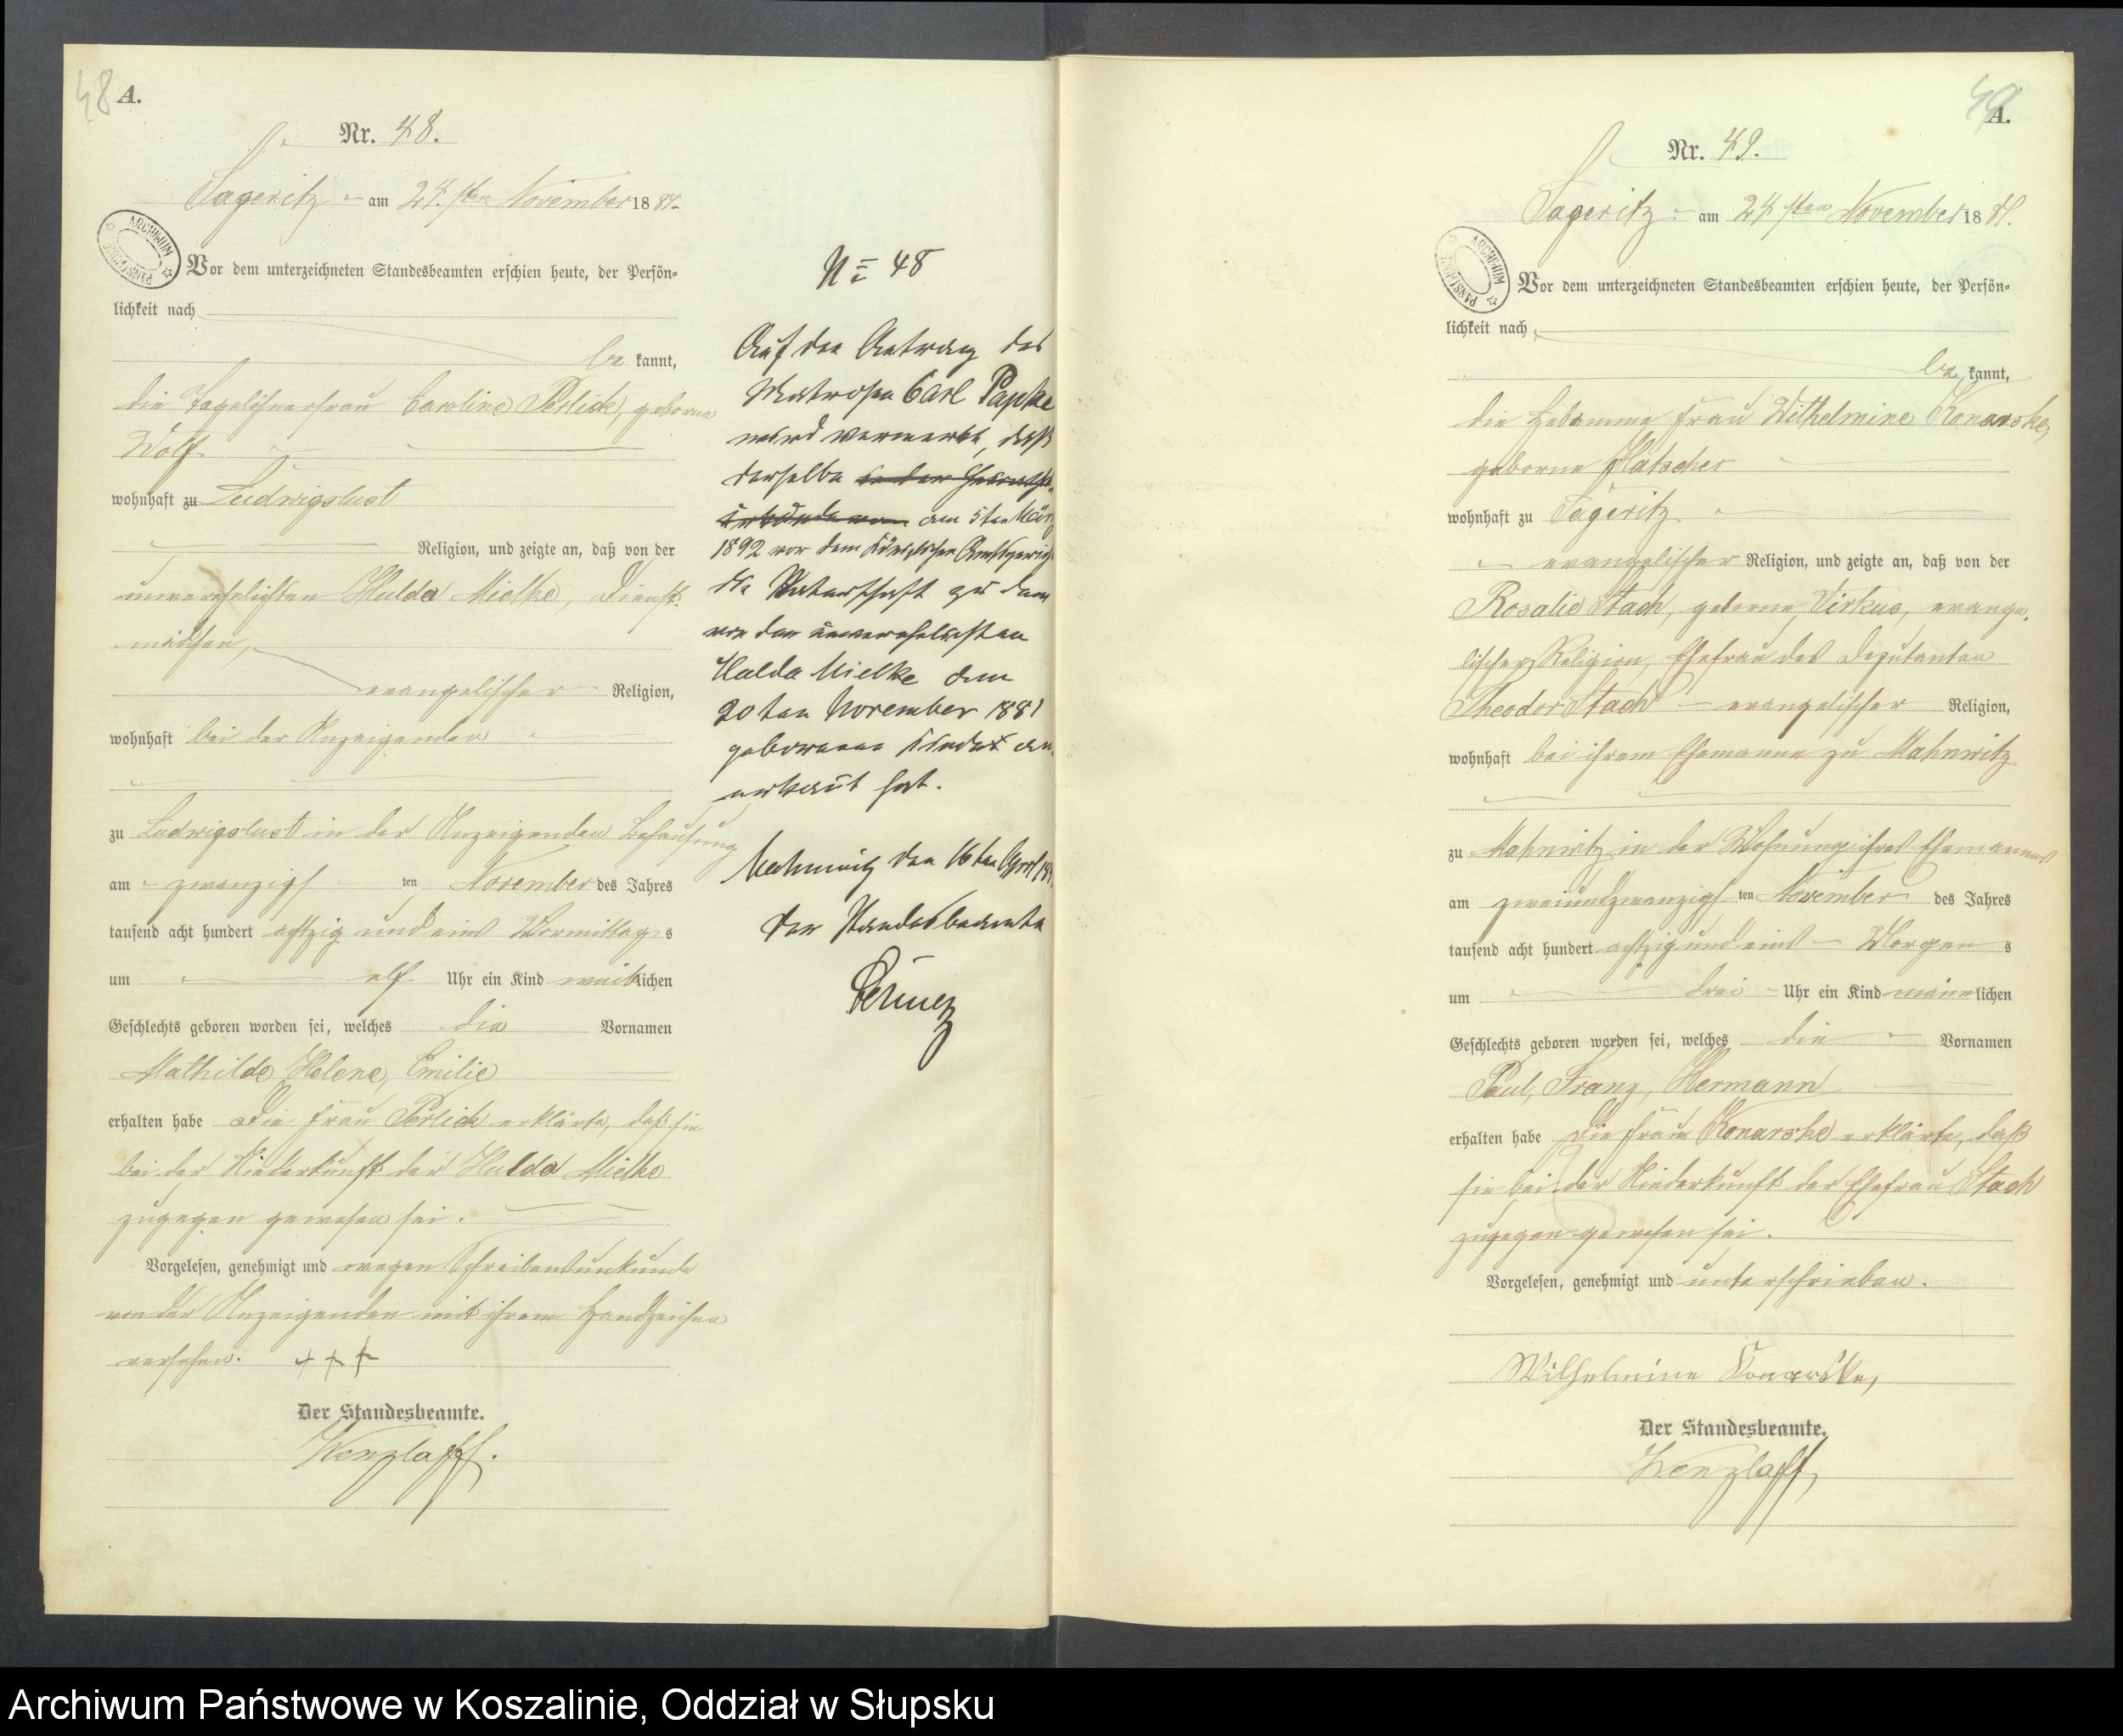 48 A.
Nr. 48.
Sageritz am 24 sten November 1881
ARCHIWUM PAŃSTWOWE
Vor dem unterzeichneten Standesbeamten erschien heute, der Persön-
lichkeit nach
be kannt,
die Tagelöhnerfrau Caroline Perlick, geborne
Wolf
wohnhaft zu Ludwigslust
Religion, und zeigte an, daß von der
unverehelichten Hulda Mielke, Dienst-
mädchen,
evangelischer Religion,
wohnhaft bei der Anzeigenden
zu Ludwigslust in der Anzeigenden Behausung
am zwanzigs ten November des Jahres
tausend acht hundert achtzig und eins Vormittag s
um elf Uhr ein Kind weiblichen
Geschlechts geboren worden sei, welches die Vornamen
Mathilde, Helene, Emilie
erhalten habe Die Frau Perlick erklärte, daß sie
bei der Niederkunft der Hulda Mielke
zugegen gewesen sei.
Vorgelesen, genehmigt und wegen Schreibensunkunde
von der Anzeigenden mit ihrem Handzeichen
versehen. + + +
Der Standesbeamte.
Wenzlaff.
No 48
Auf den Antrag des
Matrosen Carl Papke
wird vermerkt, daß
derselbe in der Geburts-
urkunde vom am 5ten März
1892 vor dem Königlichen Amtsgericht
die Vaterschaft zu dem
von der unverehelichten
Hulda Mielke den
20ten November 1881
geborenen Kindes an-
erkannt hat.
den 16ten April
Der Standesbeamte
49 A.
Nr. 49.
Sageritz am 24 sten November 1881.
ARCHIWUM PAŃSTWOWE
Vor dem unterzeichneten Standesbeamten erschien heute, der Persön-
lichkeit nach
be kannt,
die Hebamme Frau Wilhelmine Konarske,
geborne Flatscher
wohnhaft zu Sageritz
evangelischer Religion, und zeigte an, daß von der
Rosalie Stach, geborne Virkus, evange-
lischer Religion, Ehefrau des Deputanten
Theodor Stach evangelischer Religion,
wohnhaft bei ihrem Ehemanne zu Mahnwitz
zu Mahnwitz in der Wohnung ihres Ehemannes
am zweiundzwanzigs ten November des Jahres
tausend acht hundert achtzig und eins Morgen s
um drei Uhr ein Kind männlichen
Geschlechts geboren worden sei, welches die Vornamen
Paul, Franz, Hermann
erhalten habe Die Frau Konarske erklärte, daß
sie bei der Niederkunft der Ehefrau Stach
zugegen gewesen sei.
Vorgelesen, genehmigt und unterschrieben.
Wilhelmine Konarske,
Der Standesbeamte.
Wenzlaff
Archiwum Państwowe w Koszalinie, Oddział w Słupsku